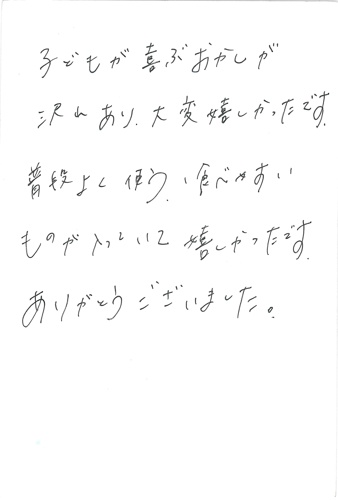 子どもが喜ぶおかしが
沢山あり、大変嬉しかったです。
普段よく使う、食べやすい
ものが入っていて嬉しかったです。
ありがとうございました。